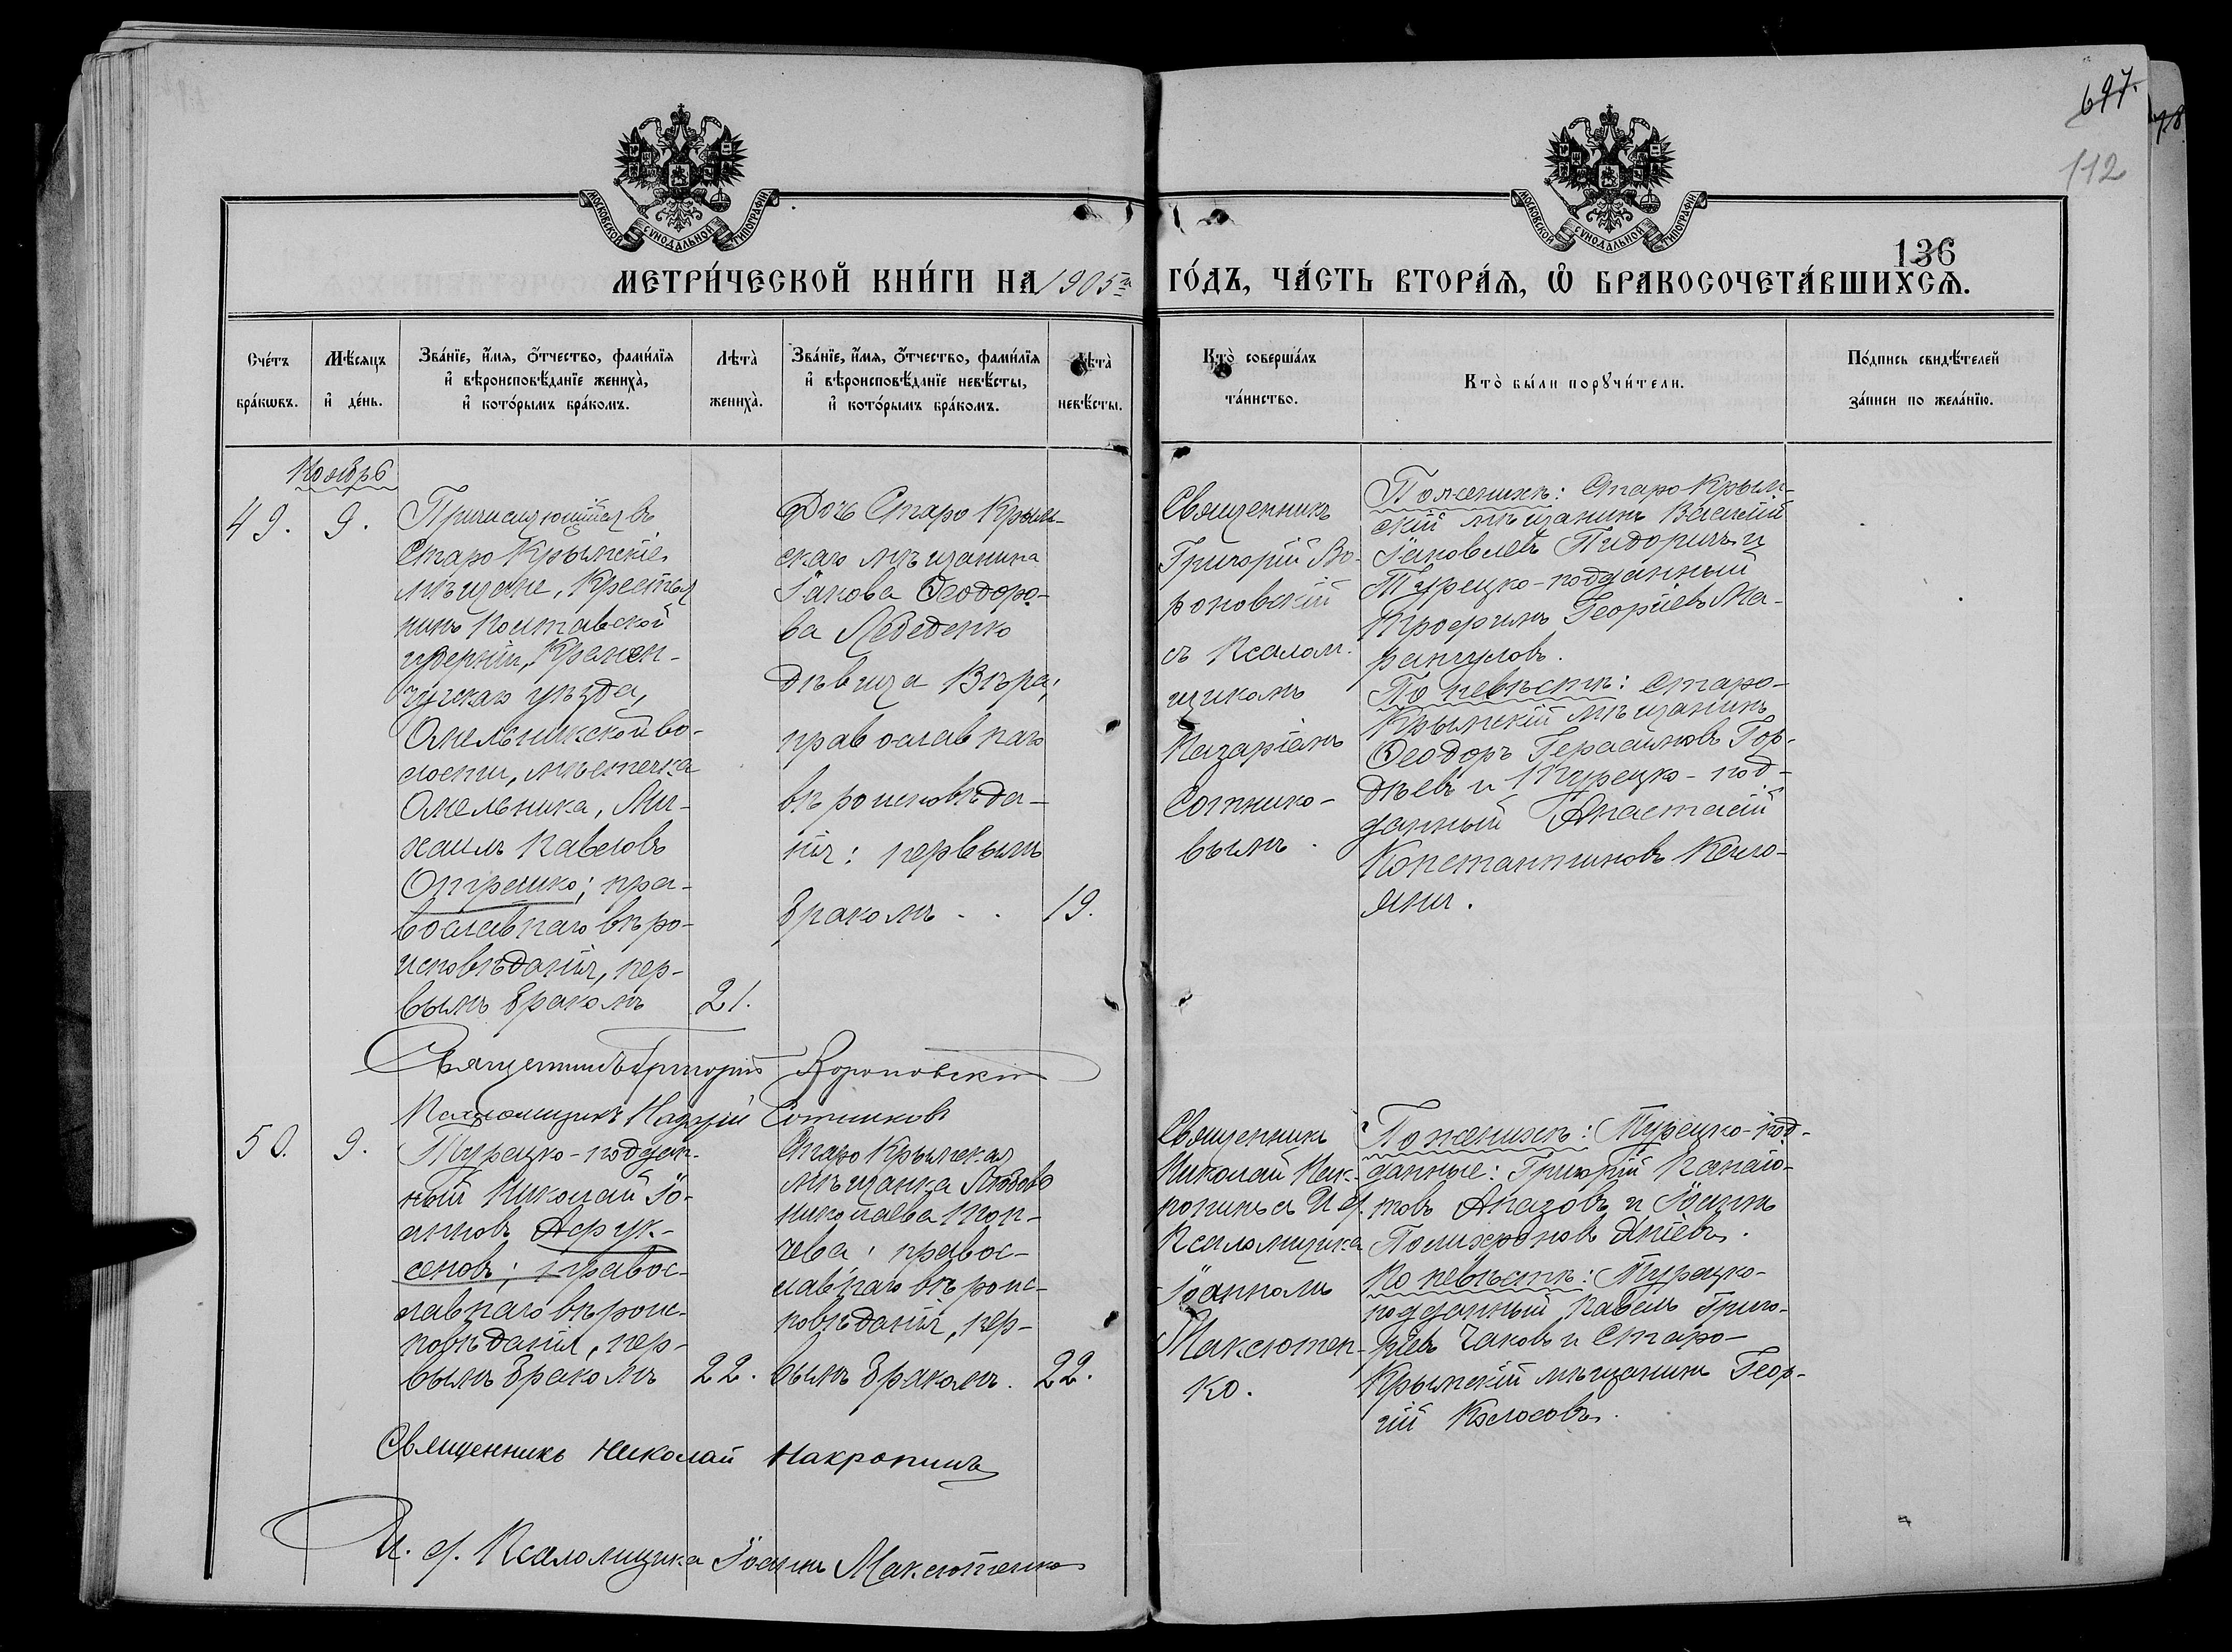 697.
78
112
МОСКОВСКОЙ СѴНОДАЛЬНОЙ ТИПОГРАФІИ
МОСКОВСКОЙ СѴНОДАЛЬНОЙ ТИПОГРАФІИ
136
МЕТРИ́ЧЕСКОЙ КНИ́ГИ НА 1905й ГО́ДЪ, ЧА́СТЬ ВТОРА́Ѧ, Ѽ БРАКОСОЧЕТА́ВШИХСѦ.
Сче́тъ
бра́кѡвъ.
Мѣ́сяцъ
и҆ де́нь.
Зва́нїе, и҆́мя, ѻ҆́тчество, фами́лїя
и҆ вѣроисповѣ́данїе жениха̀,
и҆ кото́рымъ бра́комъ.
Лѣта̀
жениха̀.
Зва́нїе, и҆́мя, ѻ҆́тчество, фами́лїя
и҆ вѣроисповѣ́данїе невѣ́сты,
и҆ кото́рымъ бра́комъ.
Лѣта̀
невѣ́сты.
Кто̀ соверша́лъ
та́инство.
Кто̀ бы́ли порꙋчи́тели.
По́дпись свидѣ́телей
за́писи по жела́нїю.
Ноябрь
49.
9.
Причисляющійся въ
Старо Крымскіе
мѣщане, крестья
нинъ Полтавской
губерніи, Кремен-
чугскаго уѣзда,
Омельникской во-
лости, мѣстечка
Омельника, Ми-
хаилъ Павловъ
Отрешко; пра-
вославнаго вѣро-
исповѣданія, пер-
вымъ бракомъ
21.
Дочь Старо Крым-
скаго мѣщанина
Іакова Ѳеодоро-
ва Лебеденко
дѣвица Вѣра;
православнаго
вѣроисповѣда-
нія: первымъ
бракомъ . .
19.
Священникъ
Григорій Во-
роновскій
съ Псалом-
щикомъ
Назаріемъ
Сотнико-
вымъ.
По женихѣ: Старо Крым-
скій мѣщанинъ Василій
Іаковлевъ Пидоричъ и
Турецко-подданный
Трофимъ Георгіевъ Ма-
рангуловъ.
По невѣстѣ: Старо-
Крымскій мѣщанинъ
Ѳеодоръ Герасимовъ Гор-
дѣевъ и Турецко-под-
данный Анастасій
Константиновъ
Священникъ Григорій Вороновскій
Псаломщикъ Назарій Сотниковъ
50.
9.
Турецко-поддан-
ный Николай Іо-
анновъ Афук-
сеновъ; правос-
лавнаго вѣроис-
повѣданія, пер-
вымъ бракомъ
22.
Старо Крымская
мѣщанка Любовь
Николаева Топ-
чева; правос-
лавнаго вѣроис-
повѣданія, пер-
вымъ бракомъ.
22.
Священникъ
Николай Нак-
ропинъ съ И. д.
Псаломщика
Іоанномъ
Максютен-
ко.
По женихѣ: Турецко-под-
данные: Григорій Панаіо-
товъ Апазовъ и Іоаннъ
Полихроновъ Яніевъ.
По невѣстѣ: Турецко-
подданный Павелъ Григо-
ріевъ Чаковъ и Старо-
Крымскій мѣщанинъ Геор-
гій Колосовъ.
Священникъ Николай Накропинъ
И. д. Псаломщика Іоаннъ Максютенко